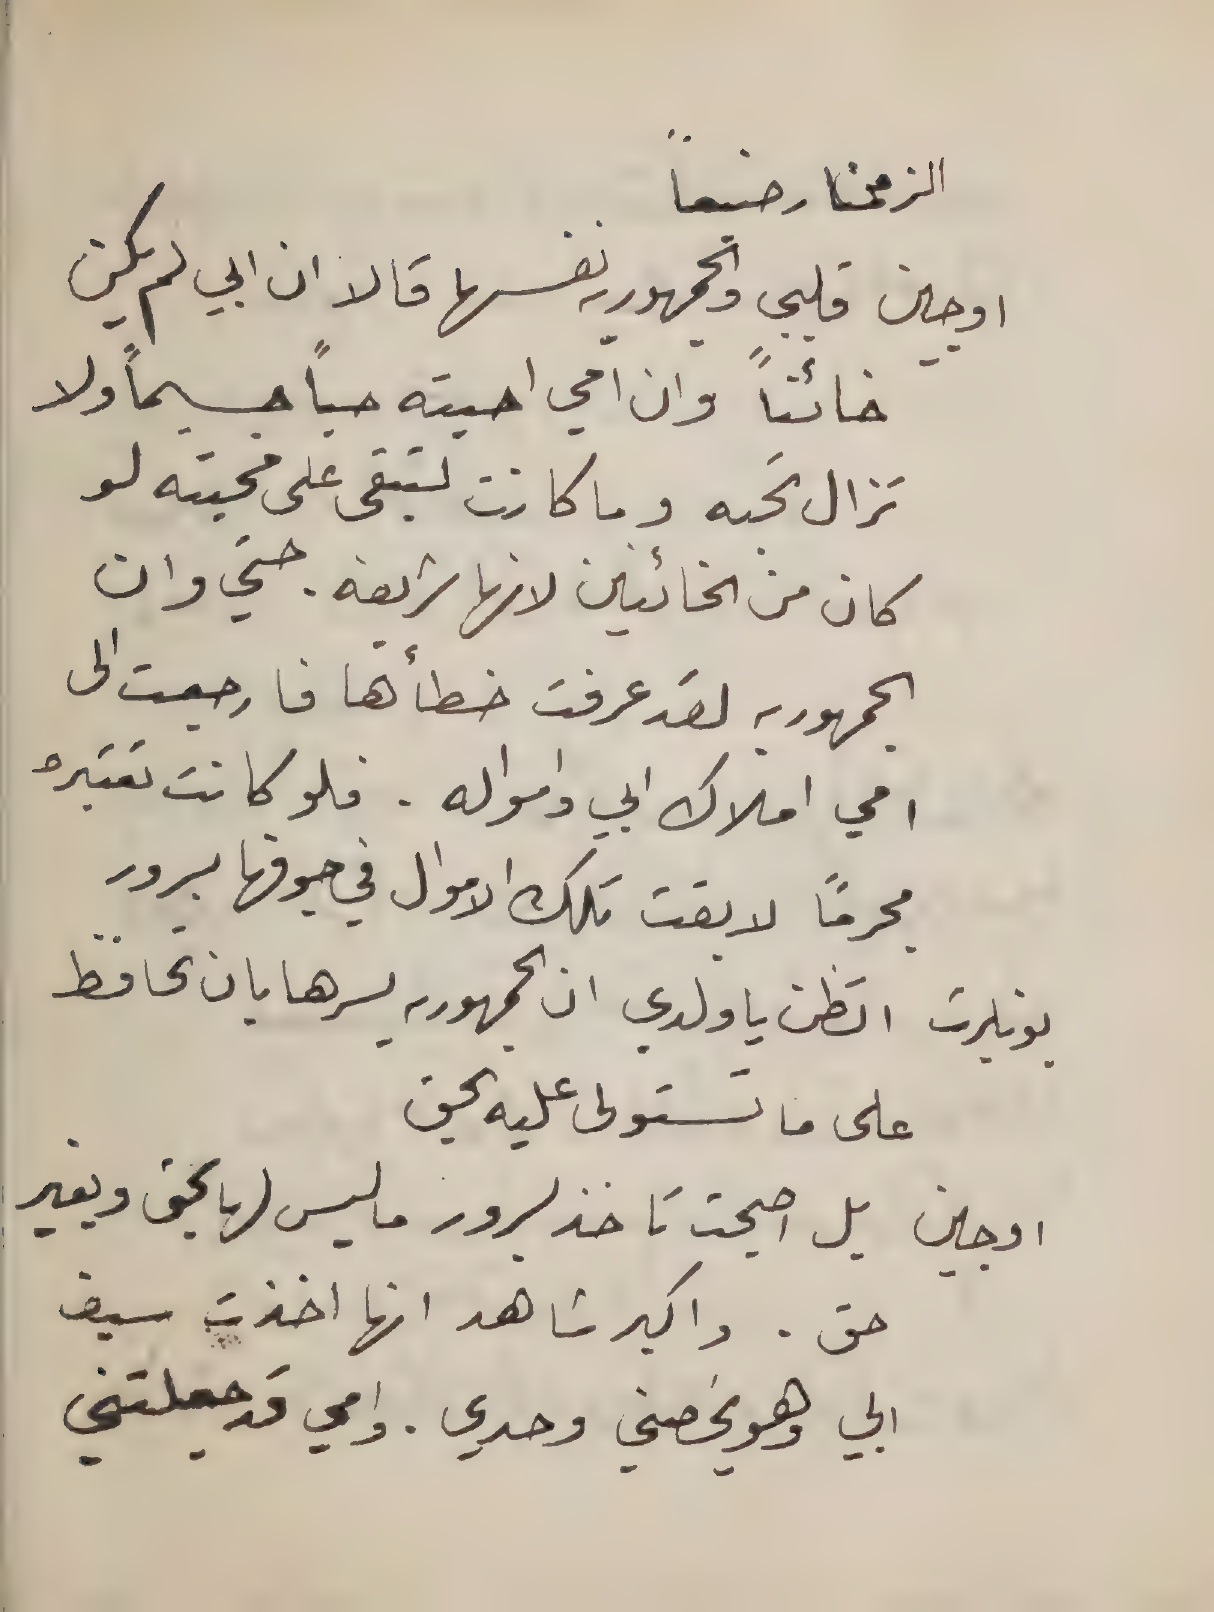 الزمن رضيعاً
اوجين قلبي والجمهوريه نفسها قالا ان ابي لم يكن
خائناً وان امي احبته حباً جسيماً ولا
تزال تحبه وما كانت لتبقى على محبته لو
كان من الخائنين لانها شريفه . حتي وان
الجمهوريه لقد عرفت خطأها فارجعت الى
امي املاك ابي وامواله . فلو كانت تعتبره
مجرمًا لابقت تلك الاموال في جوفها بسرور
بونبرت اتظن يا ولدي ان الجمهوريه يسرها بان تحافظ
على ما تستولى عليه بحق
اوجين بل اصبحت تاخذ بسرور ما ليس لها بحق وبغير
حق . واكبر شاهد انها اخذت سيف
ابي وهو يخصني وحدي . وامي قد جعلتني